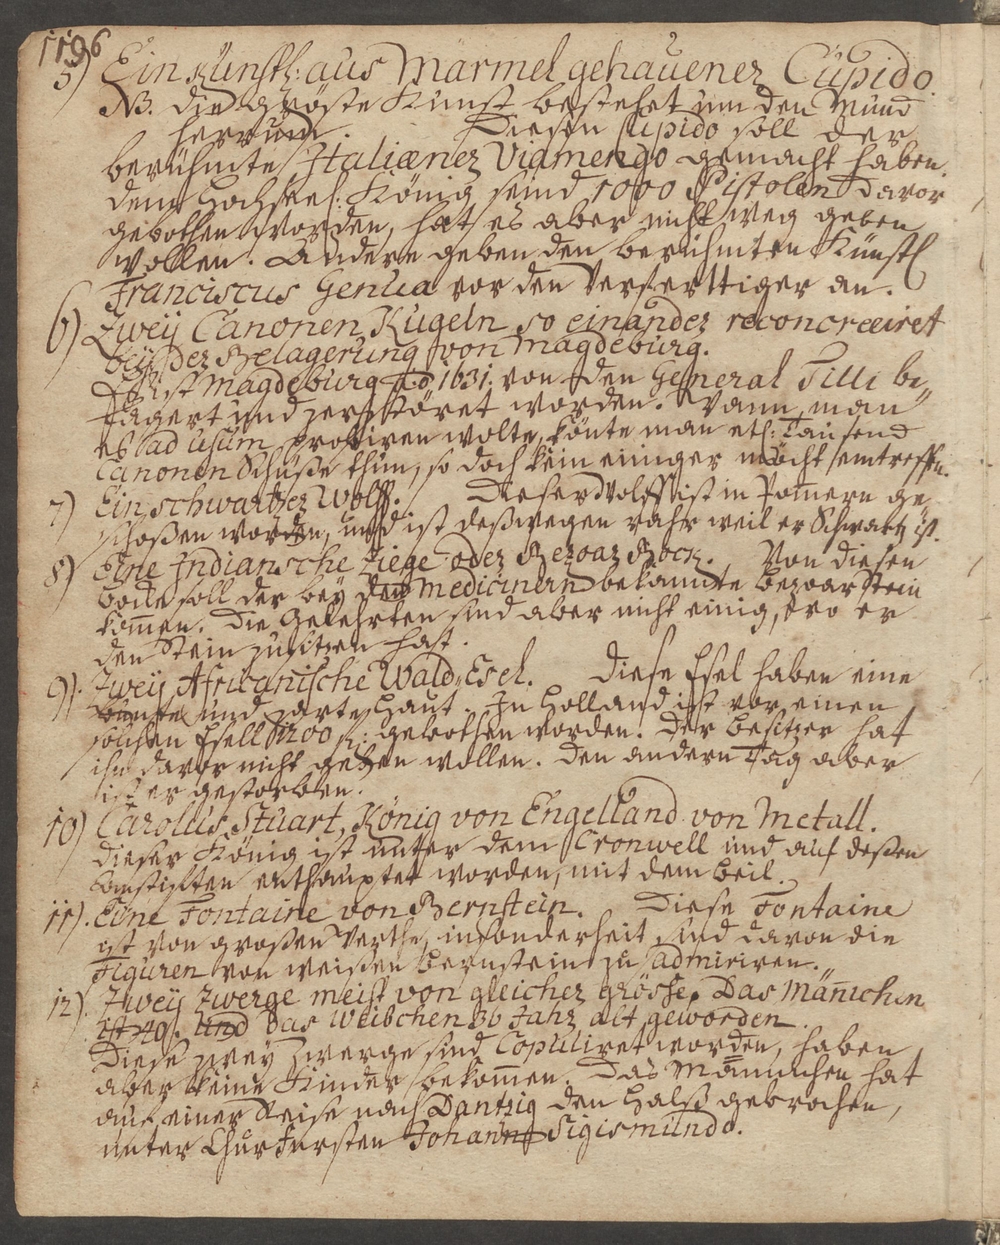 1196
5) Ein Künstl: aus Marmel gehauener Cupido.
NB. die gröste Kunst bestehet um den Mund
herrum. Diesen Cupido soll der
berühmte Italiæner Viamengo gemacht haben.
dem Hochseel: König seind 1000 Pistolen davor
gebothen worden, hat es aber nicht weg geben
wollen. Andere geben den berühmten Künstl
Franciscus Genua vor den Verferttiger an.
6) Zweÿ Canonen Kugeln so einander
beÿ der Belagerung von Magdeburg.
Es ist Magdeburg Ao 1631. von den General Tilli be,,
lagert und zerstöret worden. Wann man
es ad usum probiren wolte, könte man etl: Tausend
Canonen Schüße thun, so doch kein einiger möcht eintreffen.
7) Ein schwartzer Wolff. Dieser Wolff ist in Pomern ge,,
schoßen worden, und ist deßwegen rahr weil er Schwartz ist.
8) Eine Indianische Ziege oder Bezoar Bock. Von diesen
Bocke soll der bey den Medicinern bekandte Bezoar Stein
kommen. Die Gelehrten sind aber nicht einig, wo er
den Stein zu sitzen hat.
9). Zweÿ Africanische Wald,,Esel. Diese Esel haben eine
bunte und zarte Haut. In Holland ist vor einen
solchen Esell 1200 fl: gebothen worden. Der Besitzer hat
ihn davor nicht geben wollen. Den andern Tag aber
ist er gestorben.
10) Carolus Stuart, König von Engelland von Metall.
Dieser König ist unter dem Cronwell und auf deßen
Anstifften enthauptet worden, mit dem Beil.
11). Eine Fontaine von Bernstein. Diese Fontaine
ist von großen Werthe, insonderheit sind davon die
Figuren von weißen Bernstein zu admiriren.
12). Zweÿ Zwerge meist von gleicher grösse. Das Mänichen
ist 40. und das Weibchen 36 Jahr alt geworden.
Diese zwey Zwerge sind Copuliret worden, haben
aber keine Kinder bekommen. Das Männichen hat
auf einer Reise nach Dantzig den Halß gebrochen,
unter Chur Fürsten Johann Sigismundo.